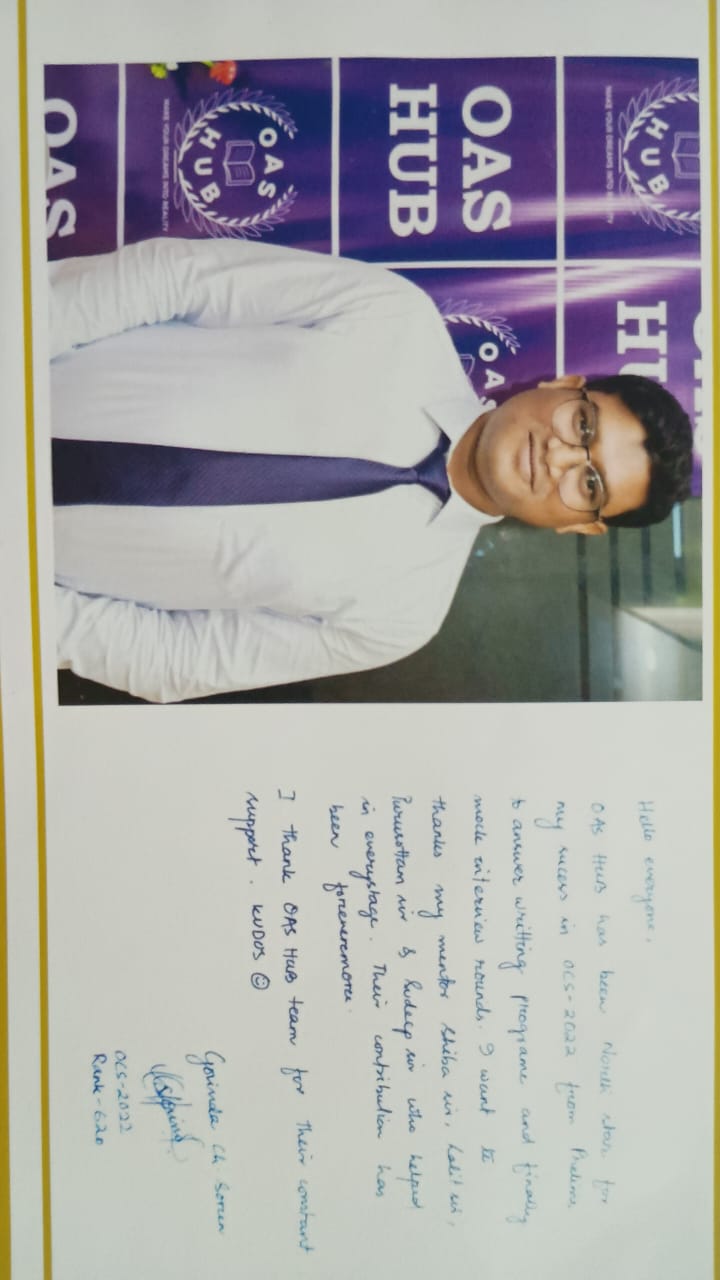 OAS
HUB
OAS
HUB
MAKE YOUR DREAMS INTO REALITY
HUB
MAKE YOUR DREAMS INTO REALITY
OAS
OAS
Hello everyone,
OAS HUB has been North star for
my success in OCS-2022 from Prelims,
to answer writting programe and finally
mock interview rounds. I want to
thanks my mentor Shiba sir, Lalit sir,
Purusottam sir & Sudeep sir who helped
in everystage. Their contribution has
been forevermore.
I thank OAS HUB team for their constant
support. KUDOS ☺
Govinda Ch. Soren
OCS-2022
Rank-620